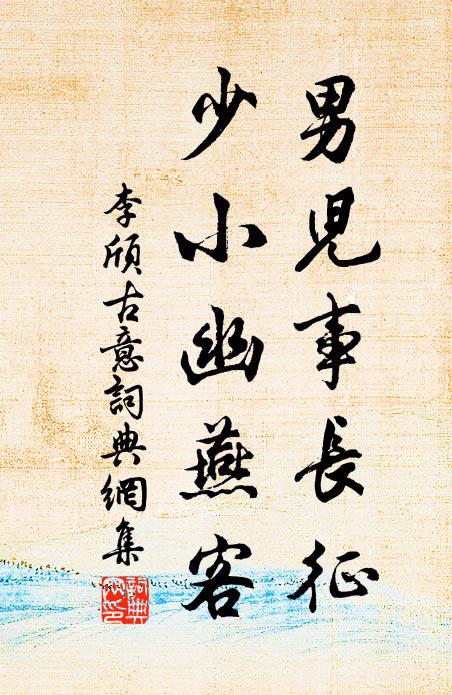 男児事長征
少小幽燕客
李頎古意詞典網集